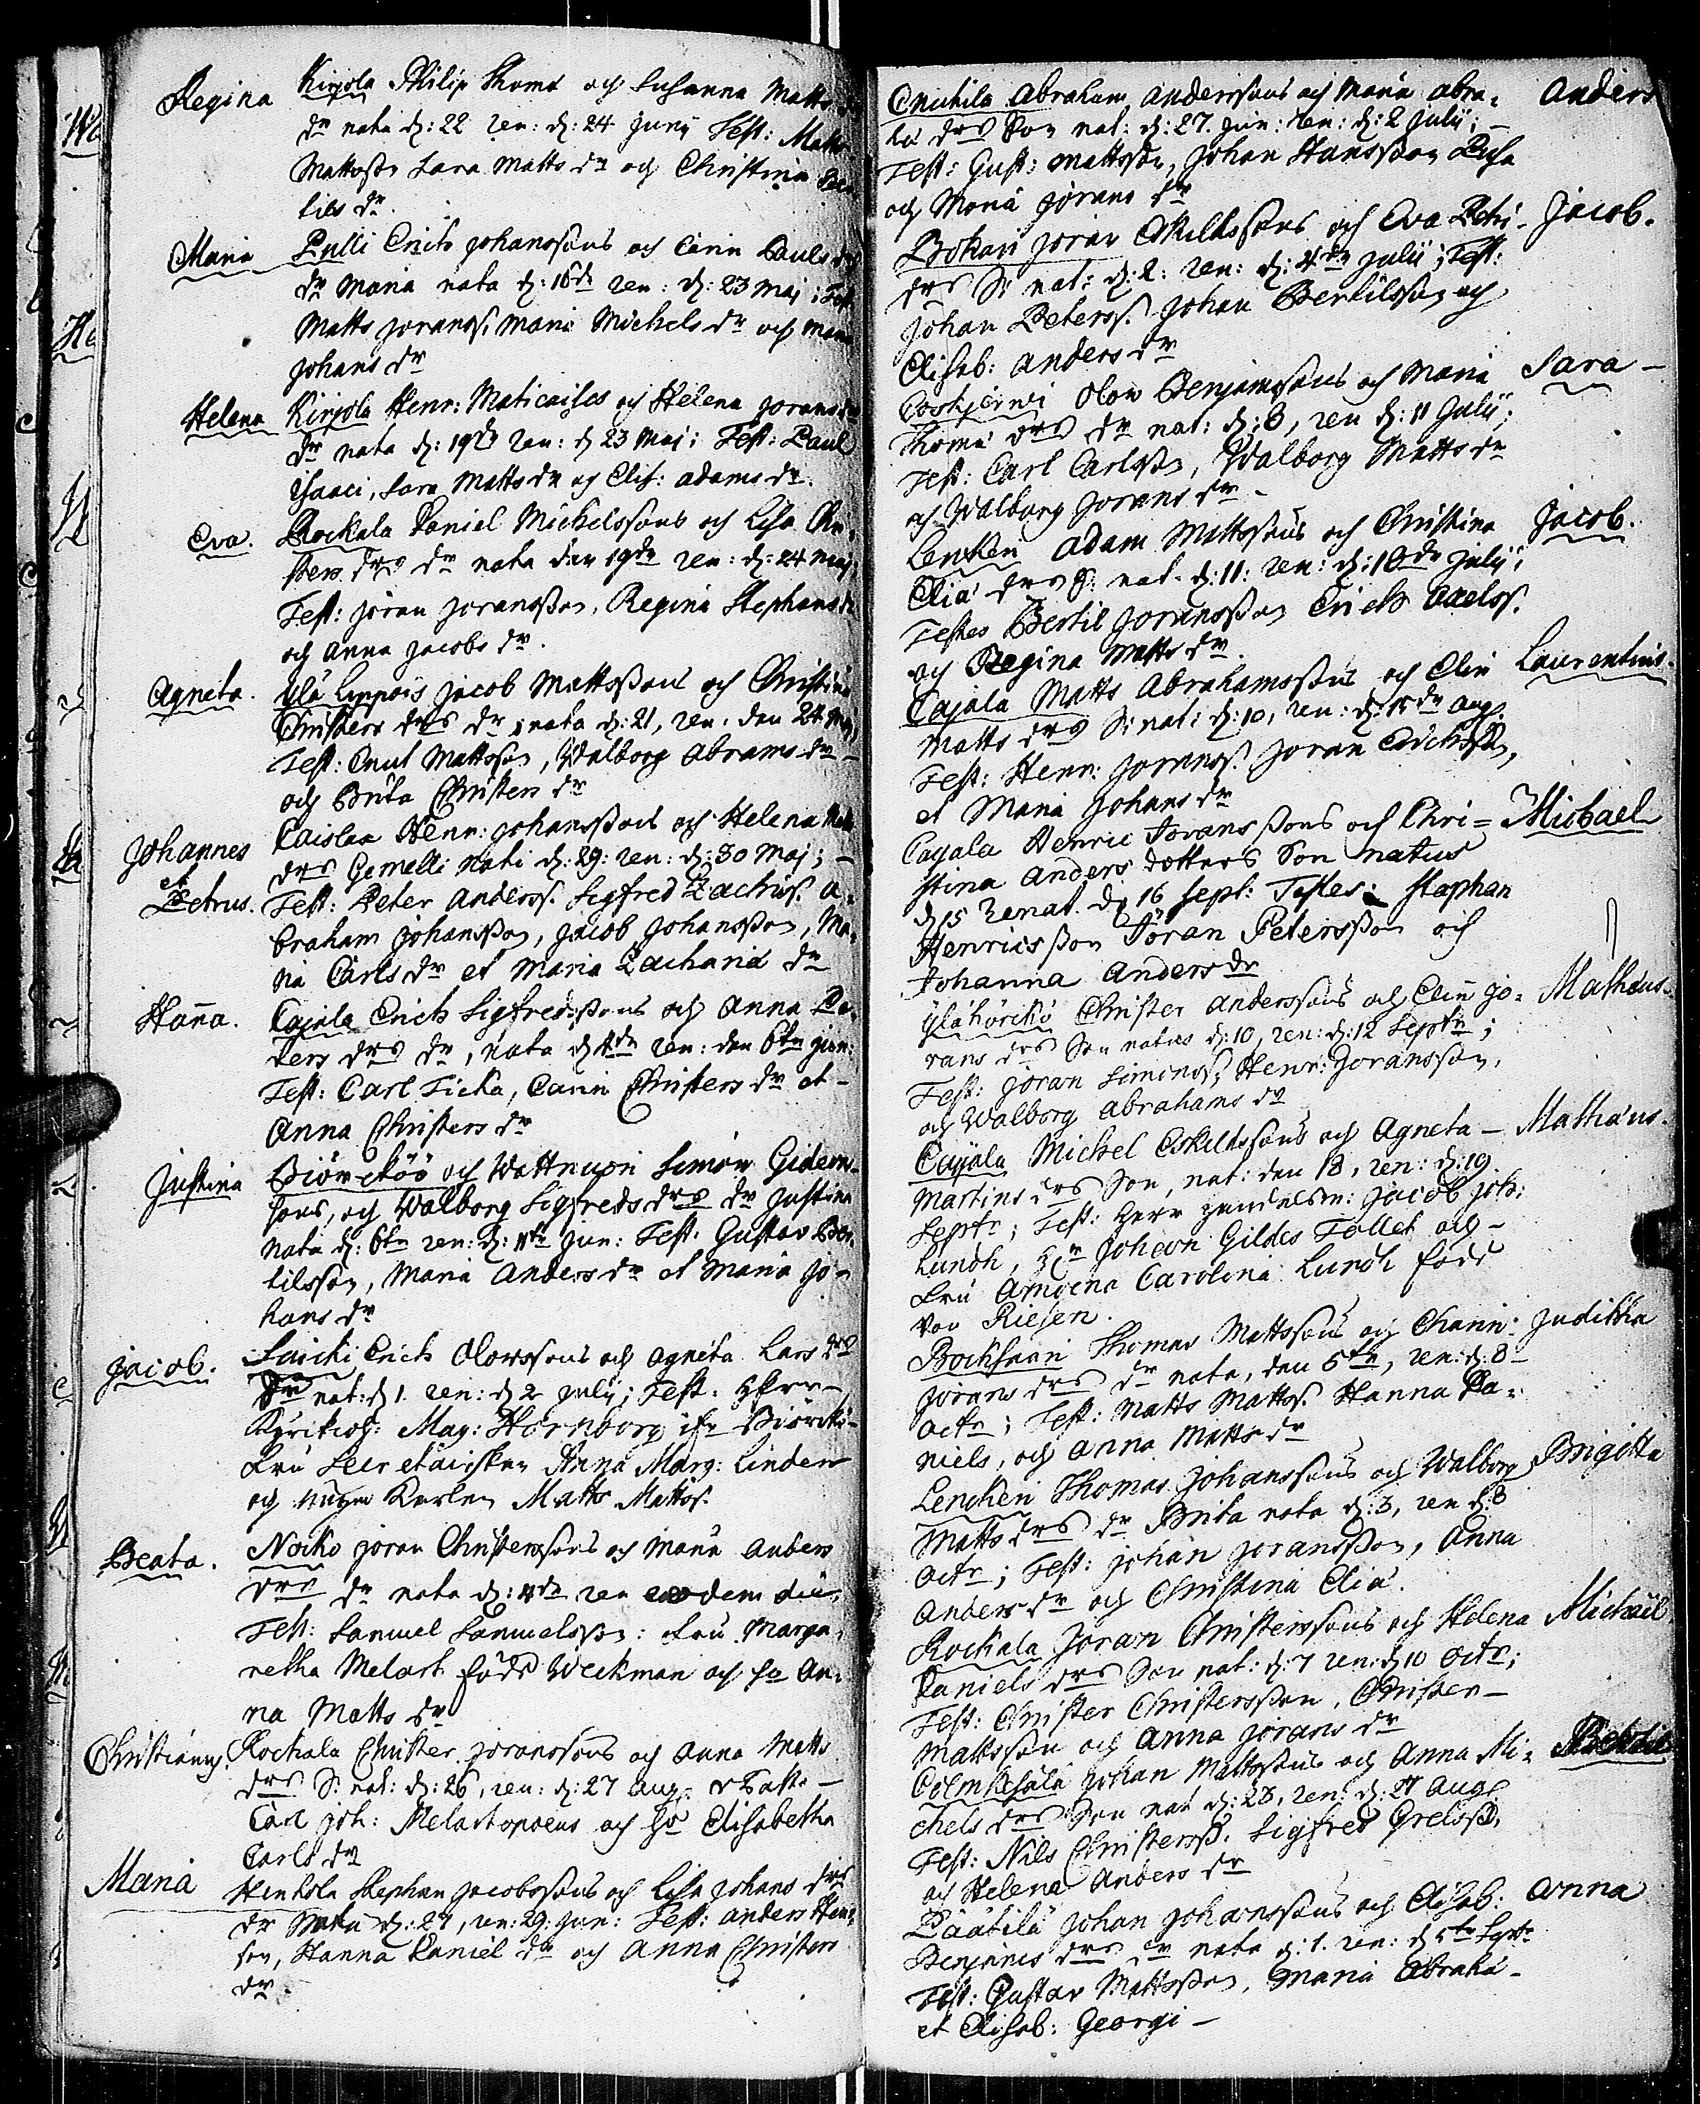 Regina
Kirjola Philip Thomæ och Susanna Matts
dr nata d: 22 ren: d: 24 Junij Test: Matts
Mattsson Sara Matts dr och Christina Ber
tils dr.
Maria
Pulli Erich Johanssons och Carin Pauls
dr Maria nata d: 16de ren: d: 23 Maj: Test:
Matts Joranss. Maria Michels dr och Maria
Johans dr
Helena
Kirjola Henr: Maticaises och Helena Jorans
dr nata d: 19de ren: d 23 Maj: Test: Paul
Isaaci, Sara Matts dr och Elis: Adams dr.
Eva.
Rockala Daniel Michelssons och Lisa Chri
sters drs dr nata den 19de ren: d: 24 Maj
Test: Jöran Joransson, Regina Stephans dr
och Anna Jacobs dr.
Agneta.
Ylä Jacob Mattssons och Christina
Christers drs dr, nata d: 21, ren: den 24 Maj,
Test: Cnut Mattsson, Walborg Abrams dr
och Brita Christers dr
Johannes
et
Petrus.
Caislaa Henr: Johanssons och Helena
drs Gemelli nati d: 29: ren: d: 30 Maj; -
Test: Peter Anderss. Sigfred Zachriss. A-
braham Johansson, Jacob Johansson, Ma-
ria Carls dr et Maria Zachariæ dr
Hanna.
Cajala Erich Sigfredssons och Anna Pe-
ters drs dr, nata d 4de ren: den 6te Jun:
Test: Carl Ticka, Carin Christers dr et -
Anna Christers dr
Justina
Biörcköö och Wattnuori Simon Gideons-
sons, och Walborg Sigfreds drs dr Justina
nata d: 6te ren: d: 11te Jun: Test: Gustav Ber-
tilsson, Maria Anders dr et Maria Jo-
hans dr
Jacob.
Laicki Erich Olowssons och Agneta Lars drs
nat: d 1. ren: d 2 Julij; Test: Herr
Kyrkioh: Mag: Hornborg ifr Biörckö
Fru Secretairskan Anna Marg: Linden
och Karlen Matts Mattss.
Beata.
Noiko Jöran Christerssons och Maria Anders
drs dr nata d: 4de ren eodem die,
Test: Samuel Samuelsson: Fru Marga-
retha Melart född Weckman och ho An-
na Matts dr
Christianus.
Rockala Christer Joranssons och Anna Matts
drs S. nat: d: 26, ren: d: 27 Aug:
Carl Joh: Melartopoeus och ho Elisabetha
Carls dr
Maria
Hinkola Stephan Jacobssons och Lisa Johans drs
dr nata d: 27, ren: 29: Jun: Test: Anders
son, Hanna Daniels dr och Anna Christers
dr.
Anders
Abraham Anderssons och Maria Abra-
hæ drs Son nat: d: 27. Jun: ren: d: 2 Julij; -
Test: Gust: Mattsson, Johan Hansson
och Maria Jorans dr
Jacob.
Jöran Eskillssons och Eva Petri
drs S: nat: d: 2: ren: d: 4de Julij; Test:
Johan Peterss. Johan Bertilsson och
Elisab: Anders dr
Sara -
Coskjerwi Olow Benjamssons och Maria
Thomæ drs dr nat: d: 8, ren d: 11 Julij;
Test: Carl Carlsson, Walborg Matts dr
och Walborg Jorans dr -
Jacob.
Lencken Adam Mattssons och Christina
Eliæ drs S: nat. d: 11: ren: d: 18de Julij;
Testes Bertil Joransson Erich
och Regina Matts dr.
Laurentius.
Cajala Matts Abrahamssons och Elin
Matts drs S: nat: d: 10, ren: d: 15de Aug:
Test: Henr: Joranss. Joran Erichsson,
et Maria Johans dr
Michael
Cajala Henric Joranssons och Chri=
stina Anders dotters Son natus
d 15 renat. d. 16 Sept: Testes: Stephan
Henricsson Jöran Petersson och
Johanna Anders dr
Mathæus.
Ylähörckö Christer Anderssons och Elin Jo=
rans drs Son natus d: 10, ren: d: 12 Septr;
Test: Joran Simonss, Henr: Joransson,
och Walborg Abrahams dr
Mathæus.
Cajala Michel Eskillssons och Agneta -
Martins drs Son, nat: den 18, ren: d: 19
Septr; Test: Herr Jacob Joh:
Lundh, Hr Johan Gildes Tollet och -
Fru Amoena Carolina Lundh född
von Riesen.
Juditha
Thomas Mattssons och Charin:
Jorans drs dr nata, den 5te, ren: d: 8 -
octr; Test: Matts Mattss. Hanna Da-
niels, och Anna Matts dr
Brigitta
Lencken Thomas Johanssons och Walborg
Matts drs dr Brita nata d: 3, ren d: 8
octr; Test: Johan Joransson, Anna
Anders dr och Christina Eliæ.
Michaël
Rockala Joran Christerssons och Helena
Daniels drs Son nat: d: 7 ren: d 10 octr;
Test: Christer Christersson, Christer -
Mattsson och Anna Jorans dr
Johan Mattssons och Anna Mi-
chels drs Son nat d: 23, ren: d: 27 Aug
Test: Nils Christerss. Sigfred Grelss.
och Helena Anders dr
Anna
Päätilä Johan Johanssons och Elisab:
Benjamins drs dr nata d: 1. ren: d 5te Septr
Test: Gustav Mattsson, Maria Abrahæ -
et Elisab: Georgi -